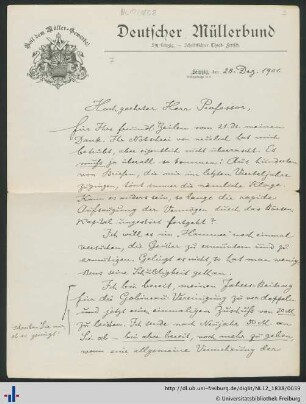 Gott dem Müller-Gewerbe!
Deutscher Müllerbund
Sitz Leipzig. — Geschäftsführer Theod. Fritsch.
Leipzig, den 28. Dez. 19
Hochgeehrter Herr Professor,
für Ihre freundl. Zeilen vom 21. ds. meinen
Dank. Ihr Nothschrei von neulich hat mich
betrübt, aber eigentlich nicht überrascht. Es
muß ja überall so kommen! Aus hunderten
von Briefen, die mir im letzten Vierteljahre
zugingen, tönt immer die nämliche Klage.
Kann es anders sein, so lange die rapide
Aufsaugung der Vermögen durch das
Kapital ungestört fortgeht?
Ich will es im „Hammer" noch einmal
versuchen, die Geister zu ermuntern und zu
ermutigen. Gelingt es nicht, so hat man wenig-
stens seine Schuldigkeit gethan.
Ich bin bereit, meinen Jahres-Beitrag
für die Gobineau-Vereinigung zu verdoppeln
und jetzt einen einmaligen Zuschuß von M
zu leisten. Ich sende nach Neujahr M. an
Sie ab — bin aber bereit, noch mehr zu geben,
wenn eine allgemeine Vermehrung der
http://dl.ub.uni-freiburg.de/diglit/NL12_1838/0039
© Universitätsbibliothek Freiburg